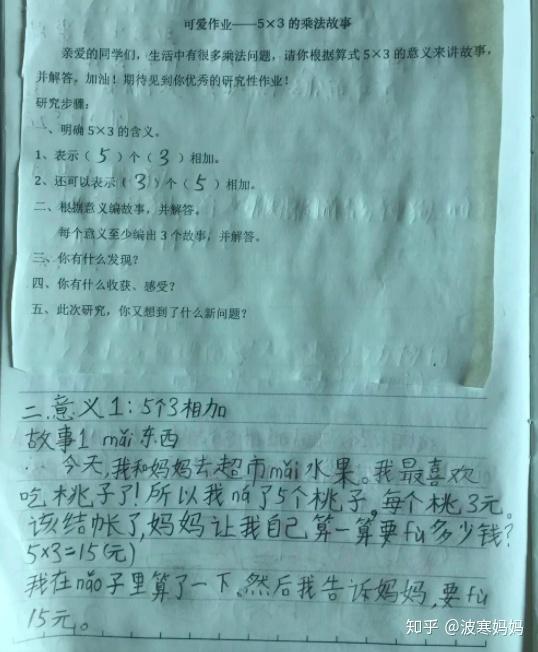 可爱作业——5×3的乘法故事
亲爱的同学们，生活中有很多乘法问题，请你根据算式5×3的意义来讲故事，
并解答。加油！期待见到你优秀的研究性作业！
研究步骤：
一、明确5×3的含义。
1、表示（5）个（3）相加。
2、还可以表示（3）个（5）相加。
二、根据意义编故事，并解答。
每个意义至少编出3个故事，并解答。
三、你有什么发现？
四、你有什么收获、感受？
五、此次研究，你又想到了什么新问题？
二.意义1：5个3相加
故事1 mǎi东西
今天，我和妈妈去超市mǎi水果。我最喜欢
吃桃子了！所以我ná了5个桃子。每个桃3元。
该结帐了，妈妈让我自己算一算要fù多少钱？
5×3=15(元)
我在nǎo子里算了一下。然后我告诉妈妈，要fù
15元。
知乎 @波寒妈妈